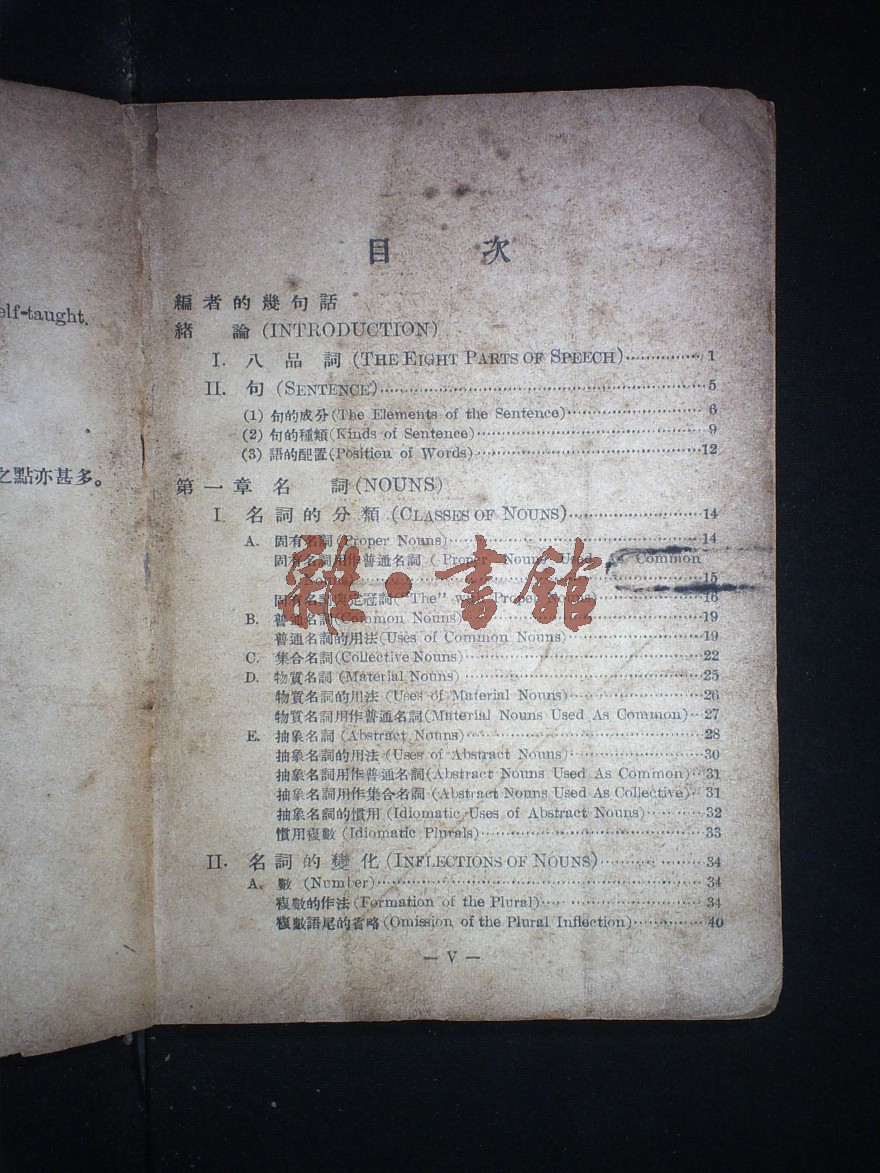 elf-taught.
之點亦甚多。
目 次
編者的幾句話
緒 論 (INTRODUCTION)
I. 八 品 詞 (THE EIGHT PARTS OF SPEECH)……………1
II. 句 (SENTENCE)……………5
(1) 句的成分 (The Elements of the Sentence)……………6
(2) 句的種類 (Kinds of Sentence)……………9
(3) 語的配置 (Position of Words)……………12
第一章 名 詞 (NOUNS)
I. 名詞的分類 (CLASSES OF NOUNS)……………14
A. 固有名詞 (Proper Nouns)……………14
固有名詞用作普通名詞 (Proper Nouns Used As Common
……………15
固有名詞 定冠詞 ("The" with Proper Nouns)……………16
B. 普通名詞 (Common Nouns)……………19
普通名詞的用法 (Uses of Common Nouns)……………19
C. 集合名詞 (Collective Nouns)……………22
D. 物質名詞 (Material Nouns)……………25
物質名詞的用法 (Uses of Material Nouns)……………26
物質名詞用作普通名詞 (Material Nouns Used As Common)…27
E. 抽象名詞 (Abstract Nouns)……………28
抽象名詞的用法 (Uses of Abstract Nouns)……………30
抽象名詞用作普通名詞 (Abstract Nouns Used As Common)…31
抽象名詞用作集合名詞 (Abstract Nouns Used As Collective)…31
抽象名詞的慣用 (Idiomatic Uses of Abstract Nouns)……………32
慣用複數 (Idiomatic Plurals)……………33
II. 名詞的變化 (INFLECTIONS OF NOUNS)……………34
A. 數 (Number)……………34
複數的作法 (Formation of the Plural)……………34
複數語尾的省略 (Omission of the Plural Inflection)……………40
— V —
雜·書館